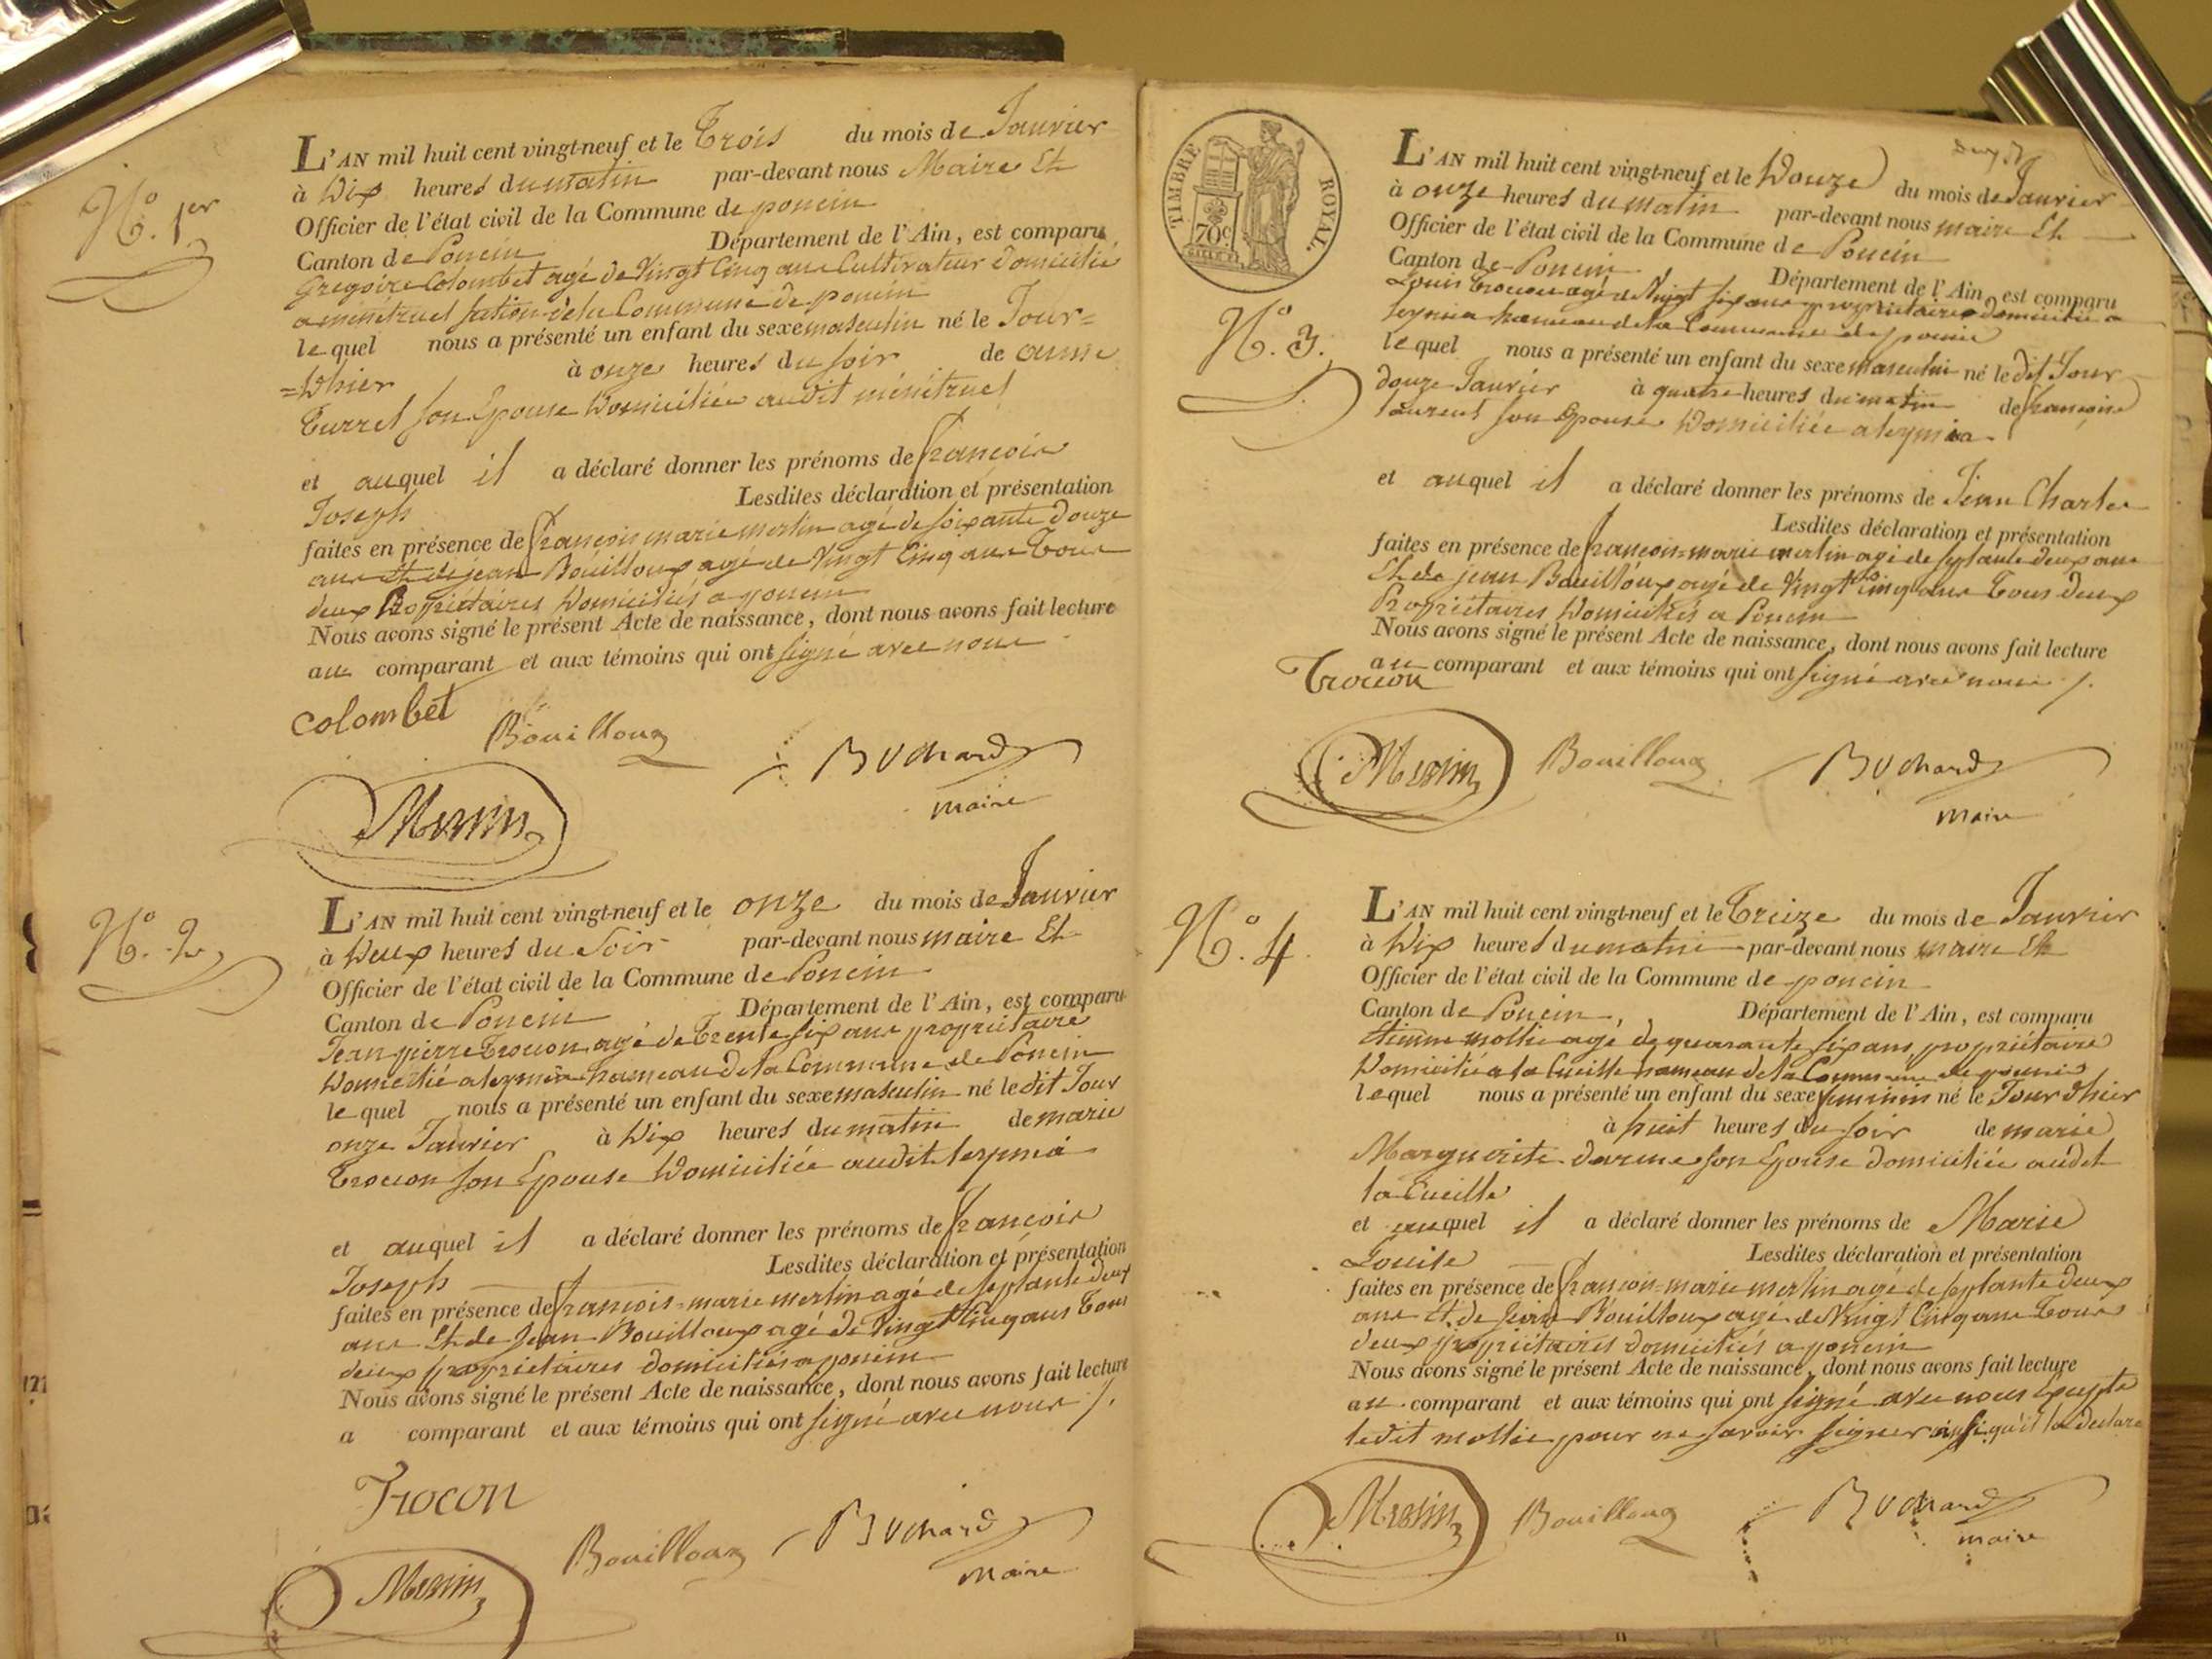 N.º 1er
L'AN mil huit cent vingt-neuf et le Trois du mois de Janvier
à Dix heures du matin par-devant nous Maire Et
Officier de l'état civil de la Commune de poncin
Canton de Poncin Département de l'Ain, est comparu
Gregoire Colombet agé de Vingt Cinq ans Cultivateur Domicilié
a ménétruel section de la Commune de poncin
lequel nous a présenté un enfant du sexe masculin né le Jour=
=D'hier à onze heures du soir de anne
Turrel son Epouse Domiciliée audit ménétruel
et auquel il a déclaré donner les prénoms de françois
Joseph Lesdites déclaration et présentation
faites en présence de françois marie merlin agé de soixante douze
ans et de jean Bouilloux agé de Vingt Cinq ans Tous
deux Propriétaires Domiciliés a poncin
Nous avons signé le présent Acte de naissance, dont nous avons fait lecture
au comparant et aux témoins qui ont signé avec nous
colombet
Bouilloux
Buchard
maire
Merlin
N.º 2
L'AN mil huit cent vingt-neuf et le onze du mois de Janvier
à Deux heures du Soir par-devant nous maire Et
Officier de l'état civil de la Commune de Poncin
Canton de Poncin Département de l'Ain, est comparu
Jean pierre Trocon agé de Trente six ans propriétaire
Domicilié a leymia hameau de la Commune de Poncin
lequel nous a présenté un enfant du sexe masculin né ledit Jour
onze Janvier à Dix heures du matin de marie
Trocon son Epouse Domiciliée audit leymia
et auquel il a déclaré donner les prénoms de françois
Joseph Lesdites déclaration et présentation
faites en présence de françois=marie merlin agé de septante deux
ans Et de Jean Bouilloux agé de Vingt Cinq ans Tous
deux propriétaires domiciliés a poncin
Nous avons signé le présent Acte de naissance, dont nous avons fait lecture
a comparant et aux témoins qui ont signé avec nous /.
Trocon
Bouilloux
Buchard
maire
Merlin
TIMBRE ROYAL.
70c
N.º 3.
L'AN mil huit cent vingt-neuf et le Douze du mois de Janvier
à onze heures du matin par-devant nous maire Et
Officier de l'état civil de la Commune de Poncin
Canton de Poncin Département de l'Ain, est comparu
Louis Trocon agé de Vingt six ans propriétaire Domicilié a
leymia hameau de la Commune de poncin
lequel nous a présenté un enfant du sexe masculin né ledit Jour
douze Janvier à quatre heures du matin de françoise
laurent son Epouse Domiciliée a leymia.
et auquel il a déclaré donner les prénoms de Jean Charles
Lesdites déclaration et présentation
faites en présence de françois=marie merlin agé de septante deux ans
Et de jean Bouilloux agé de Vingt Cinq ans Tous deux
Propriétaires Domiciliés a Poncin
Nous avons signé le présent Acte de naissance, dont nous avons fait lecture
au comparant et aux témoins qui ont signé avec nous /.
Trocon
Merlin
Bouilloux
Buchard
maire
N.º 4.
L'AN mil huit cent vingt-neuf et le Treize du mois de Janvier
à Dix heures du matin par-devant nous maire Et
Officier de l'état civil de la Commune de poncin
Canton de Poncin, Département de l'Ain, est comparu
Etienne mollie agé de quarante six ans, propriétaire
Domicilié a la Cueille hameau de la Commune de poncin
lequel nous a présenté un enfant du sexe feminin né le Jour d'hier
à huit heures du soir de marie
Marguerite darme son Epouse domiciliée audit
la Cueille
et auquel il a déclaré donner les prénoms de Marie
Louise Lesdites déclaration et présentation
faites en présence de françois=marie merlin agé de septante deux
ans Et de Jean Bouilloux agé de Vingt Cinq ans Tous
deux propriétaires domiciliés a poncin
Nous avons signé le présent Acte de naissance, dont nous avons fait lecture
au comparant et aux témoins qui ont signé avec nous Excepté
ledit mollie pour ne savoir signer ainsi qu'il la declaré
Merlin
Bouilloux
Buchard
maire